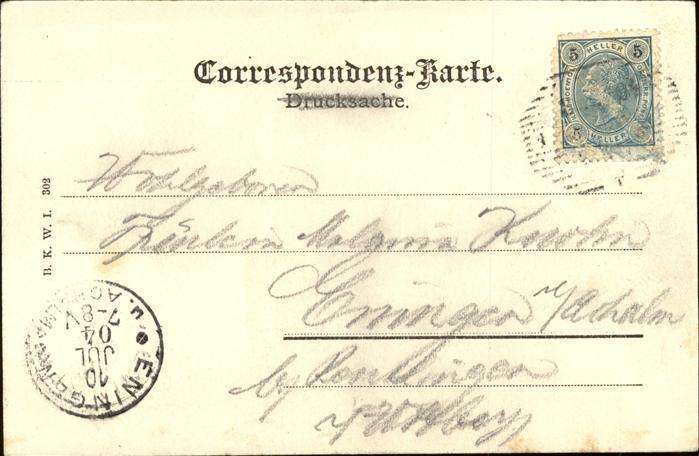 Correspondenz-Karte.
Drucksache.
5 HELLER 5
5 HELLER 5
Wohlgeboren
Fräulein
Eningen u/Achalm
by Reutlingen
B. K. W. I. 302
ENINGEN u. ACHALM
10 JUL 04
7-8V